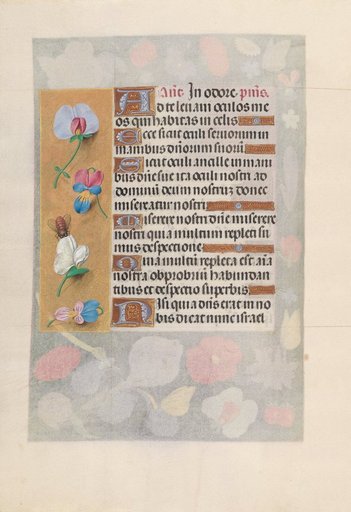 Añe. In odore. psm̃s.
Ad te levavi oculos me
os qui habitas in celis
Ecce sicut oculi servorum in
manibus dñorum suorũ
Sicut oculi ancille in mani
bus dñe sue ita oculi nostri ad
dominũ deum nostrum donec
misereatur nostri
Miserere nostri dñe miserere
nostri quia multum repleti su
mus despectione
Quia multũ repleta est aĩa
nostra obprobriũ habundan
tibus et despectio superbis
Nisi quia dñs erat in no
bis dicat nunc israel